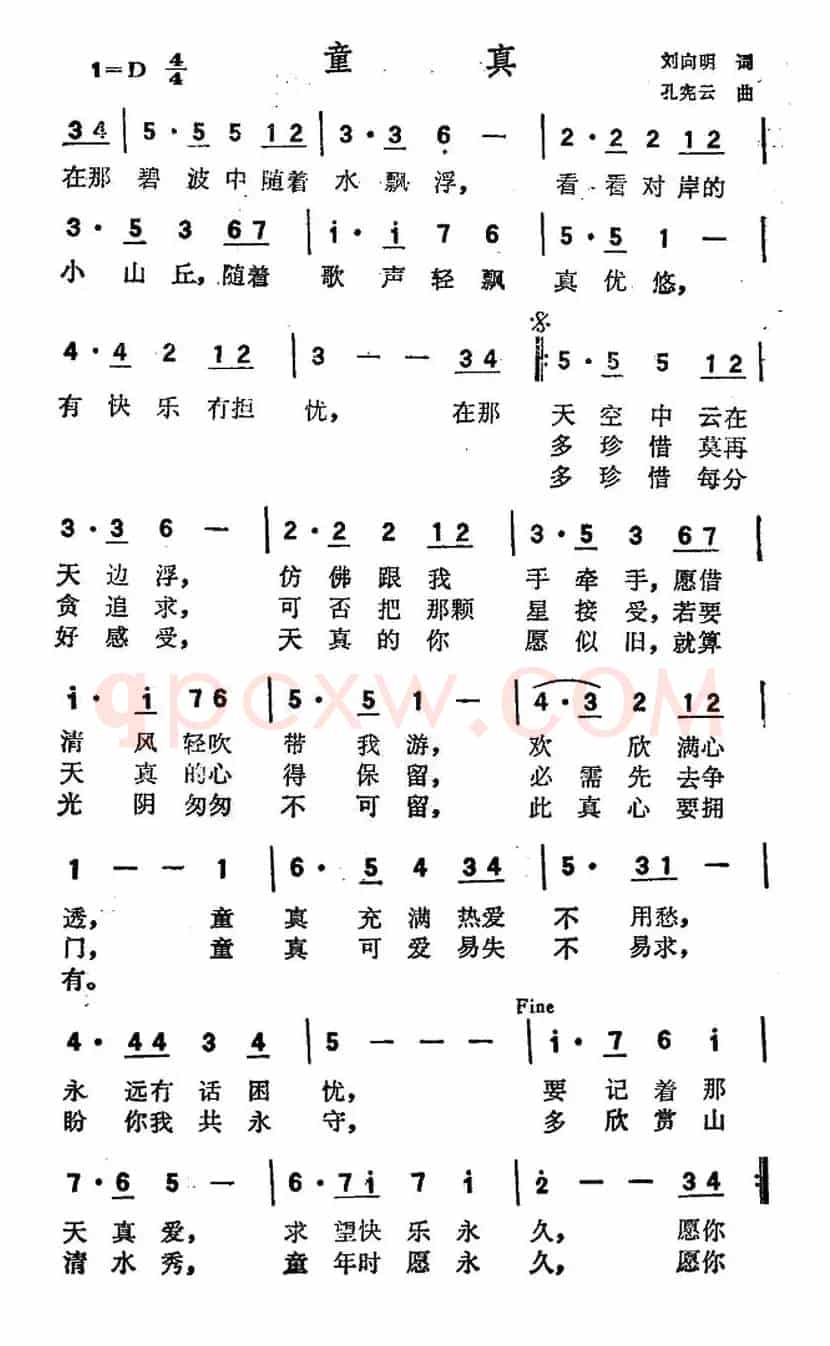 1=D 4/4 童 真 刘向明 词
孔宪云 曲
3 4 | 5 · 5 5 1 2 | 3 · 3 6 － | 2 · 2 2 1 2 |
在那 碧 波 中 随着 水 飘 浮， 看 看 对 岸的
3 · 5 3 6 7 | i · i 7 6 | 5 · 5 1 － |
小 山 丘，随着 歌 声 轻 飘 真 优 悠，
4 · 4 2 1 2 | 3 － － 3 4 ‖: 5 · 5 5 1 2 |
有 快 乐 冇担 忧， 在那 天 空 中 云在
多 珍 惜 莫再
多 珍 惜 每分
3 · 3 6 － | 2 · 2 2 1 2 | 3 · 5 3 6 7 |
天 边 浮， 仿 佛 跟 我 手 牵 手，愿借
贪 追 求， 可 否 把 那颗 星 接 受，若要
好 感 受， 天 真 的 你 愿 似 旧，就算
i · i 7 6 | 5 · 5 1 － | 4 · 3 2 1 2 |
qpcxw.COM
清 风 轻吹 带 我 游， 欢 欣 满心
天 真 的心 得 保 留， 必 需 先 去争
光 阴 匆匆 不 可 留， 此 真 心 要拥
1 － － 1 | 6 · 5 4 3 4 | 5 · 3 1 － |
透， 童 真 充 满 热爱 不 用愁，
门， 童 真 可 爱 易失 不 易求，
有。
Fine
4 · 4 4 3 4 | 5 － － － | i · 7 6 i |
永 远冇 话 困 忧， 要 记 着 那
盼 你我 共 永 守， 多 欣 赏 山
7 · 6 5 － | 6 · 7 i 7 i | 2 － － 3 4 :‖
天 真 爱， 求 望快 乐 永 久， 愿你
清 水 秀， 童 年时 愿 永 久， 愿你